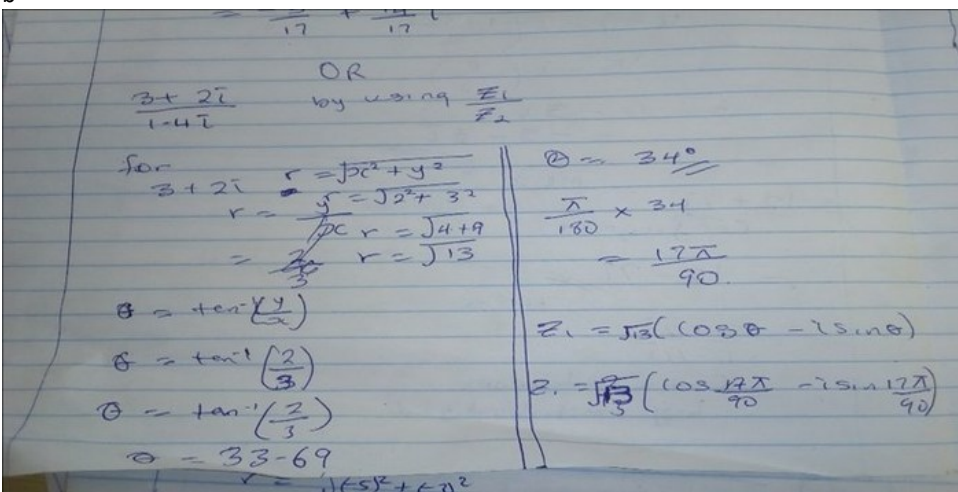 = -5/17 + 14/17 i
OR
3+2i / 1-4i by using Z1/Z2
for
3+2i r = √x² + y²
r = y/x = √2² + 3²
r = √4+9
= 2/3 r = √13
θ = tan⁻¹(y/x)
θ = tan⁻¹(2/3)
θ = tan⁻¹(2/3)
θ = 33-69
r = √(-5)² + (-3)²
θ = 34°
π/180 × 34
= 17π/90.
Z1 = √13(cosθ - isinθ)
Z1 = √13(cos 17π/90 - isin 17π/90)